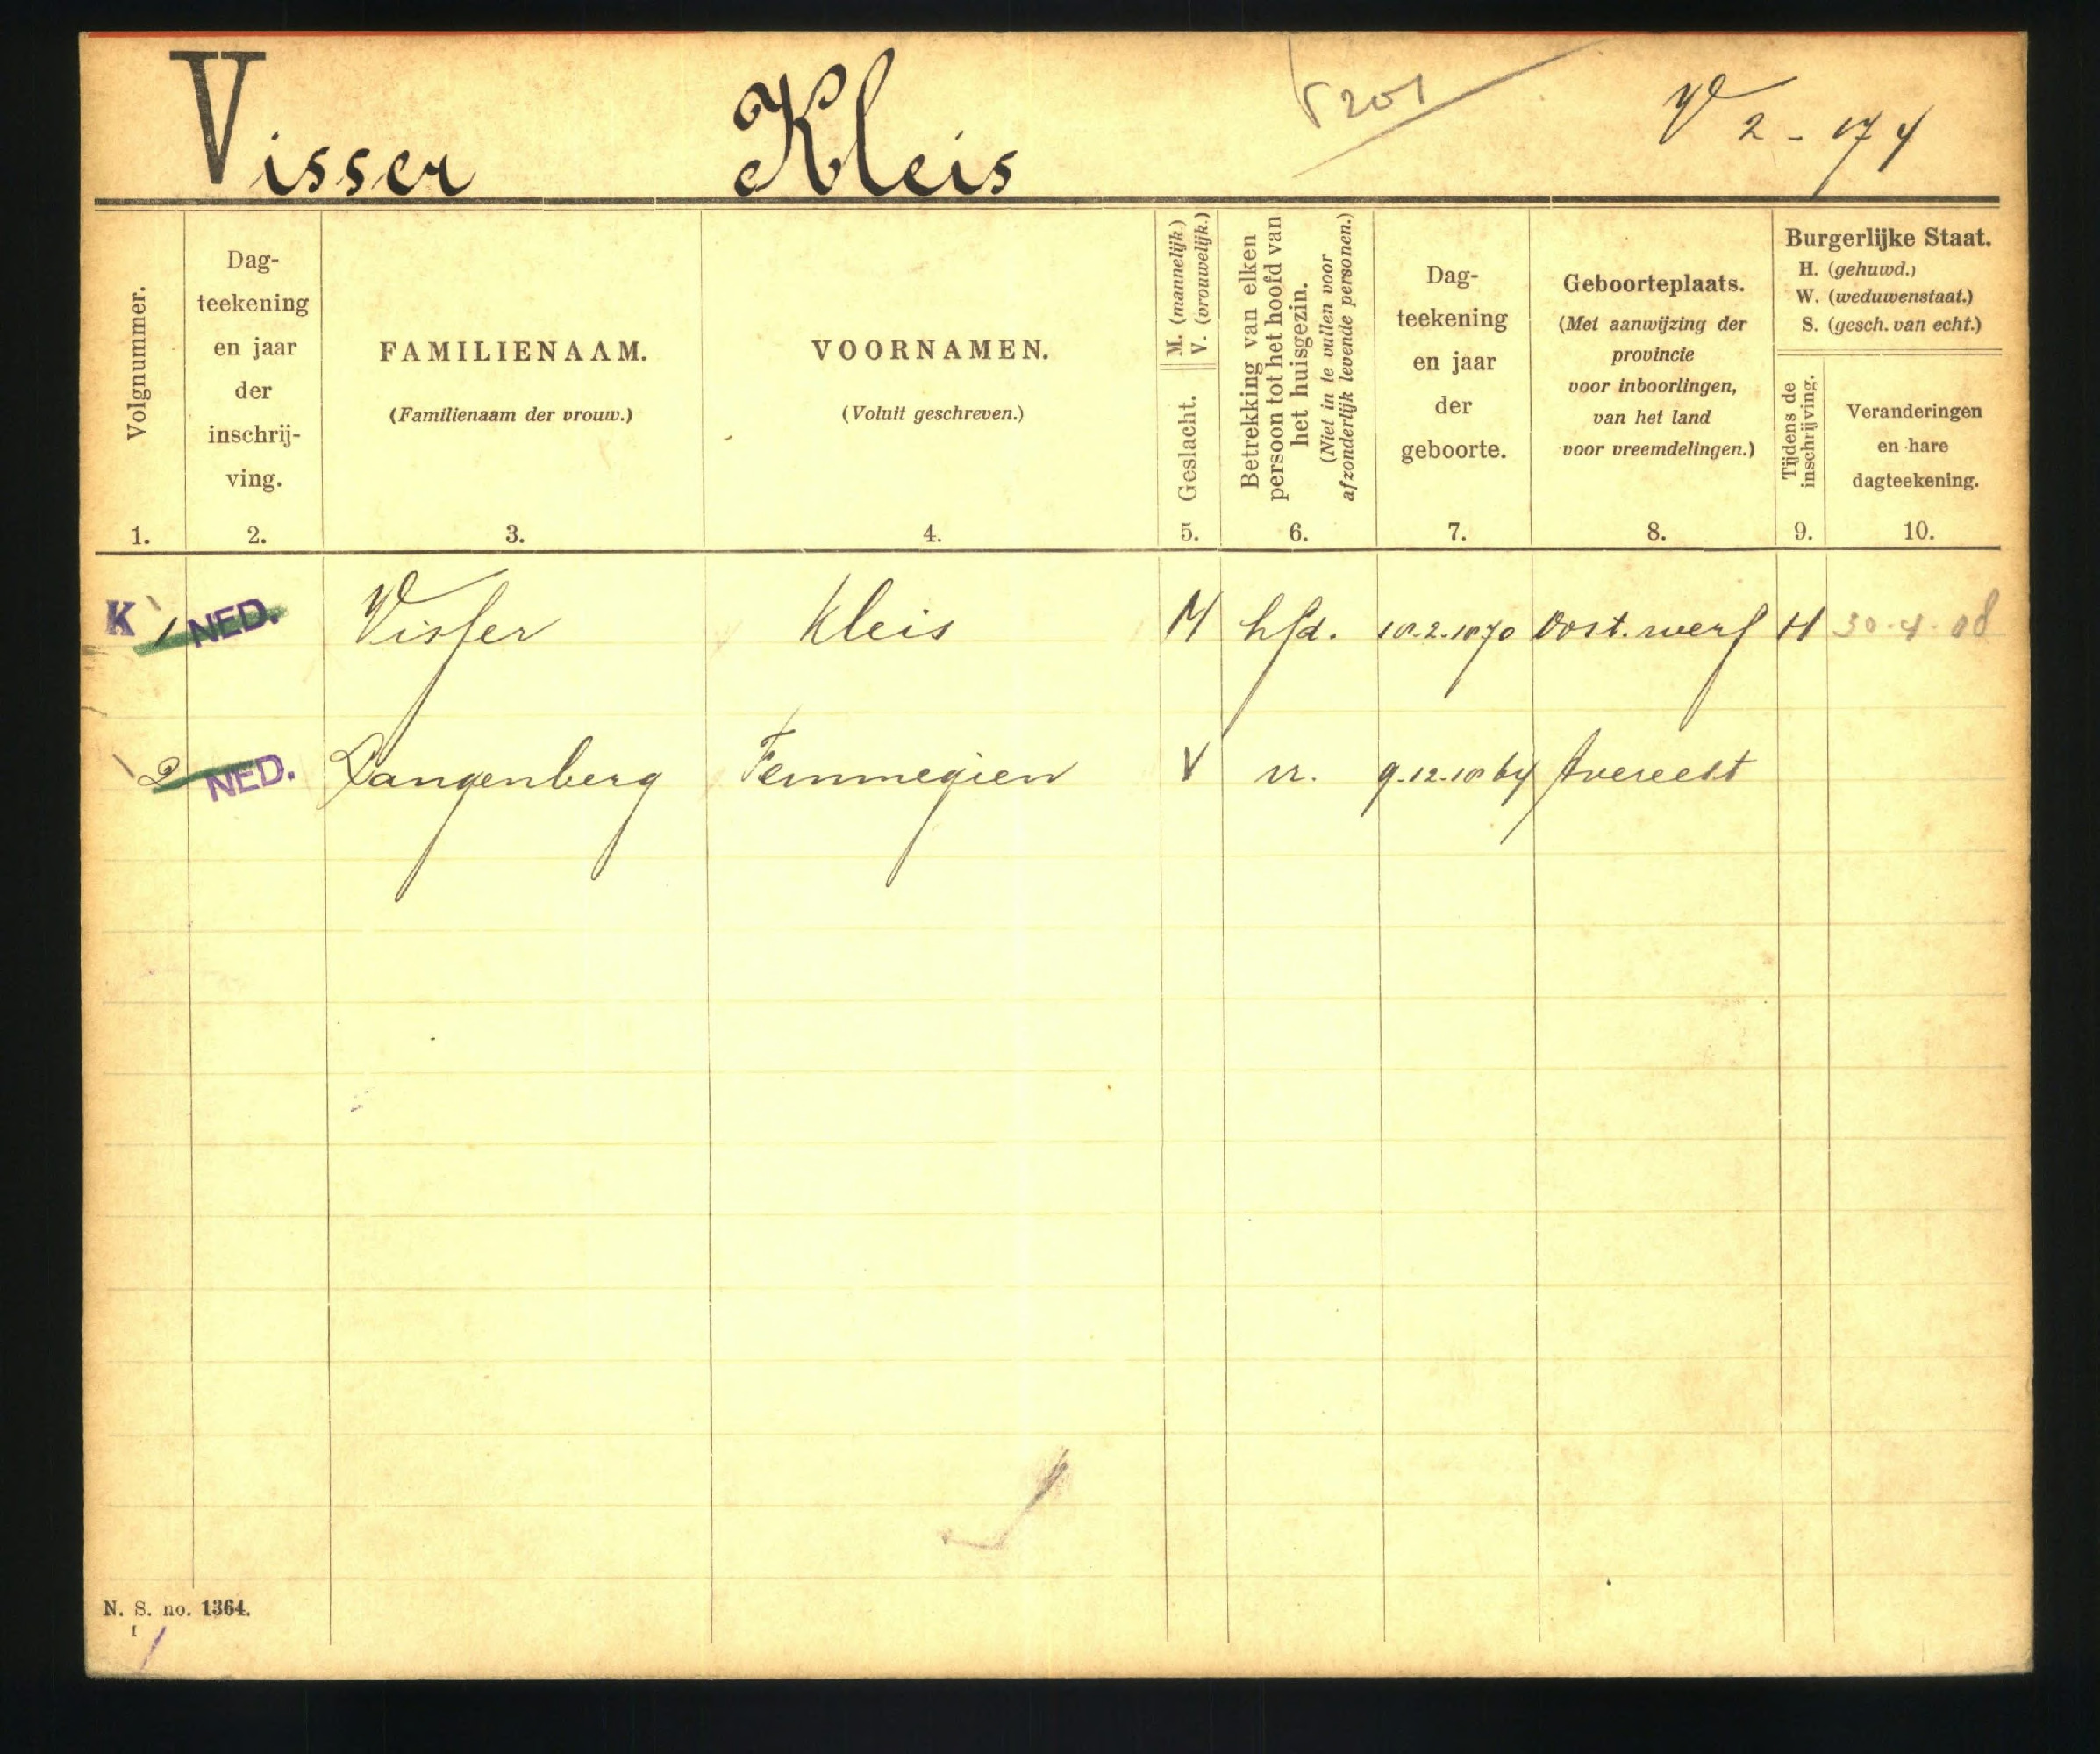 Visser Kleis 5201 V 2 - 174
Volgnummer.
1.
Dag-
teekening
en jaar
der
inschrij-
ving.
2.
FAMILIENAAM.
(Familienaam der vrouw.)
3.
VOORNAMEN.
(Voluit geschreven.)
4.
M. (mannelijk.)
V. (vrouwelijk.)
Geslacht.
5.
Betrekking van elken
persoon tot het hoofd van
het huisgezin.
(Niet in te vullen voor
afzonderlijk levende personen.)
6.
Dag-
teekening
en jaar
der
geboorte.
7.
Geboorteplaats.
(Met aanwijzing der
provincie
voor inboorlingen,
van het land
voor vreemdelingen.)
8.
Burgerlijke Staat.
H. (gehuwd.)
W. (weduwenstaat.)
S. (gesch. van echt.)
Tijdens de
inschrijving.
9.
Veranderingen
en hare
dagteekening.
10.
K 1 NED. Visser Kleis M hfd. 18.2.1870 Oost.werf H 30-4-08
2 NED. Langenberg Femmegien V vr. 9.12.1864 Avereest
N. S. no. 1364.
I